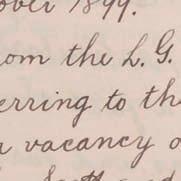 ober 1899.
om the L. G.
erring to th
a vacancy o